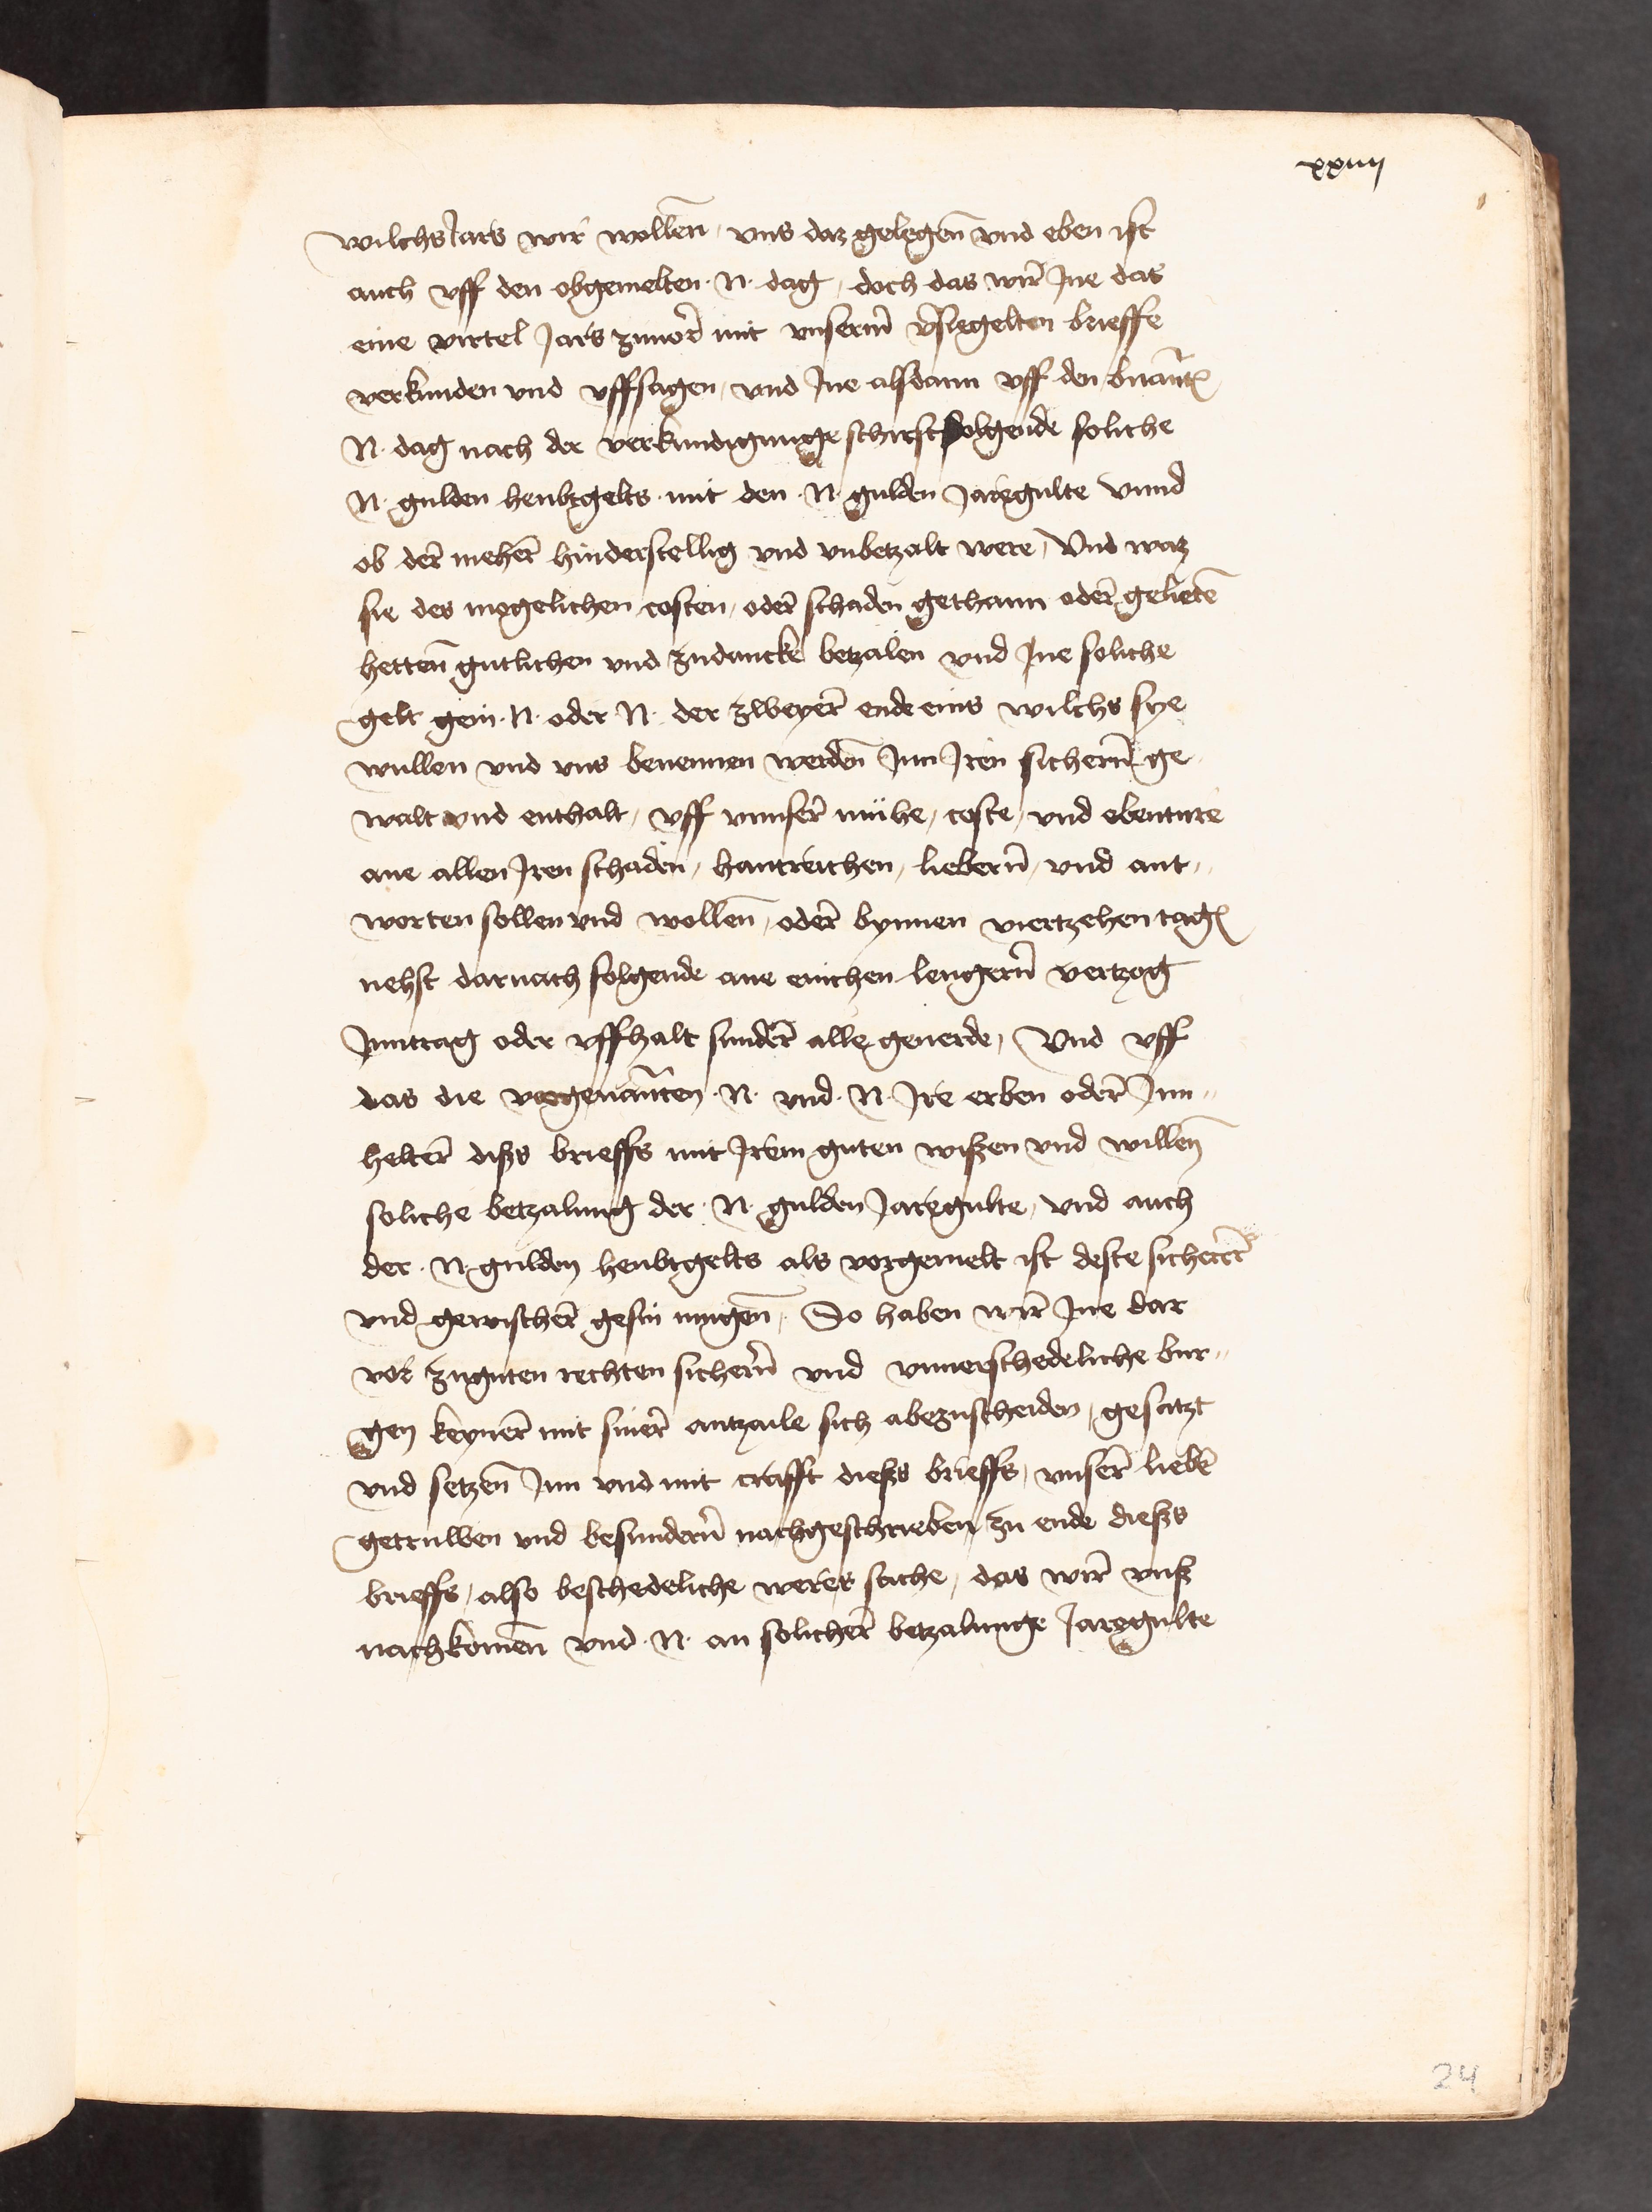 xxiiij
wilchs Jars wir wollen̄ / vns daz gelegen̄ vnd eben ist
auch vff den obgemelten · N · dag / doch das wir Jne das
eine virtel Jars zuuor mit vnserm v̄siegelten brieffe
verkunden vnd vffsagen / vnd Jne alsdann vff den bnan̄t
N · dag nach der verkundigunge schirstfolgende soliche
N · gulden heubtgelts · mit den · N · gulden Jaregulte vnnd
ob der meher hinderstellig vnd vnbetzalt were / Vnd waz
sie des mogelichen costen / oder schaden gethann oder geliten̄
hetten̄ gutlichen vnd zudancke betzalen vnd Jne soliche
gelt gein · N · oder N · der zweyer ende eins wilchs sye
wullen vnd vns benennen werden̄ Jnn Jren sichern̄ ge
walt vnd enthalt / vff vnnser mühe / coste / vnd ebenture
ane allen Jren schaden / hantreichen / liebern̄ / vnd ant„
worten sollen vnd wollen̄ / oder bynnen viertzehen tag
nehst darnach folgende ane einchen lengern̄ vertzog
Jnntrag oder vffhalt sunder alle geuerde / Vnd vff
das die vorgenan̄ten · N · vnd · N · Jre erben oder Jnn„
helter dißs brieffs mit Jrem guten wißen vnd willen̄
soliche betzalung der · N · gulden Jaregulte / vnd auch
der · N · gulden heubtgelts als vorgemelt ist deste sicherer
vnd gewischer gesin mugen̄ / So haben wir Jne dar
vor zuguten rechten sichern̄ vnd vnuerschedeliche bur„
gen keyner mit siner antzaile sich abezuscheiden / gesatzt
vnd setzen̄ Jnn vnd mit crafft dießs brieffs / vnser lieben̄
getruwen vnd besundern̄ nachgeschrieben zu ende dießs
brieffs / also beschedeliche weres sache / das wir vnß
nachkomen̄ vnd · N · an solicher betzalunge Jaregulte
24